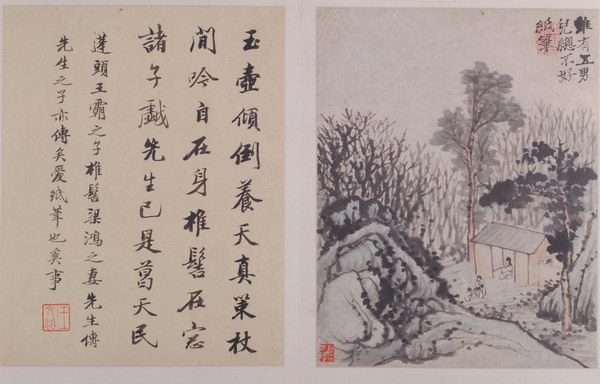 雖有五男
兒總不好
紙筆
玉壺傾倒養天真策杖
閒吟自在身椎髻在窓
諸子戲先生已是葛天民
蓬頭王霸之子椎髻梁鴻之妻先生傳
先生之子亦傳矣爱紙筆也奚事